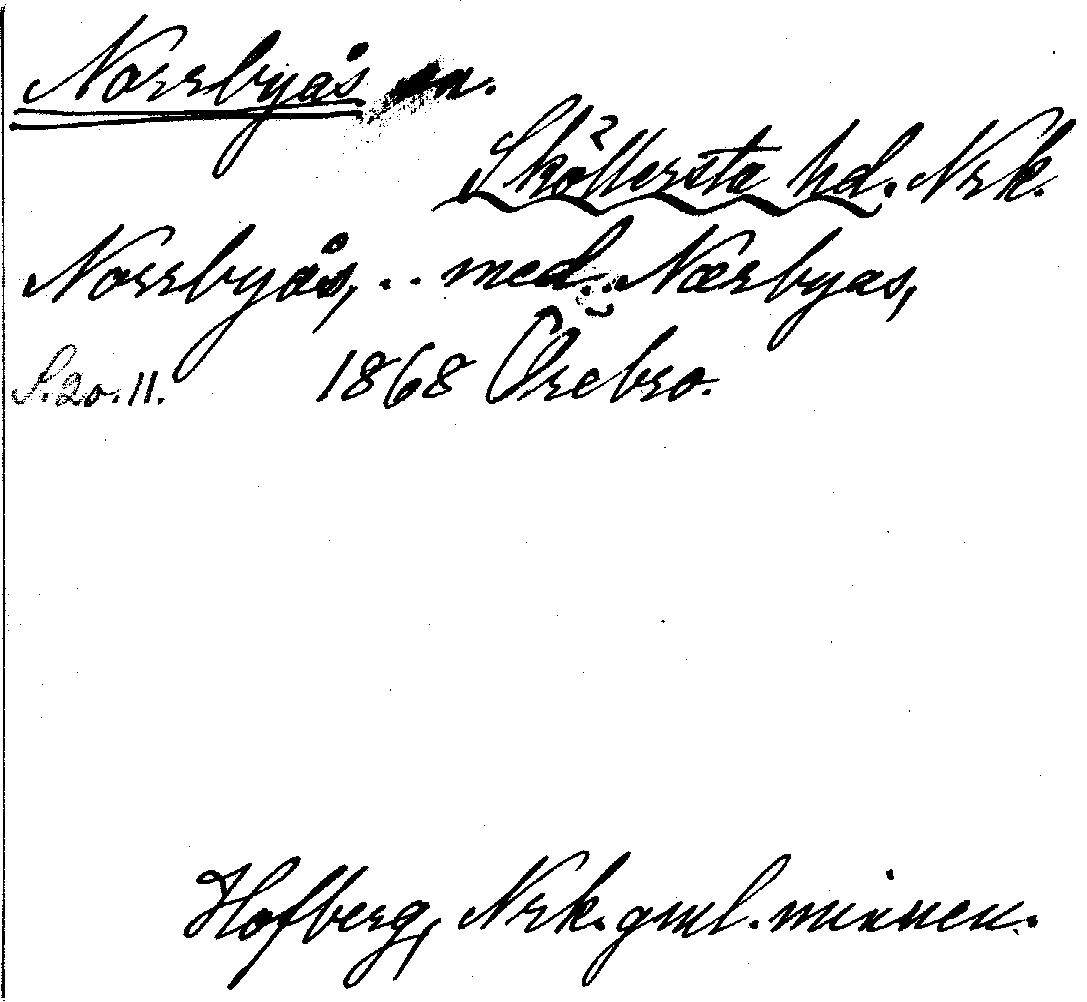 Norrbyås sn.
Sköllersta hd. Nrk.
Norrbyås, .. med. Nærbyas,
S. 20. 11. 1868 Örebro.
Hofberg, Nrk. gml. minnen.